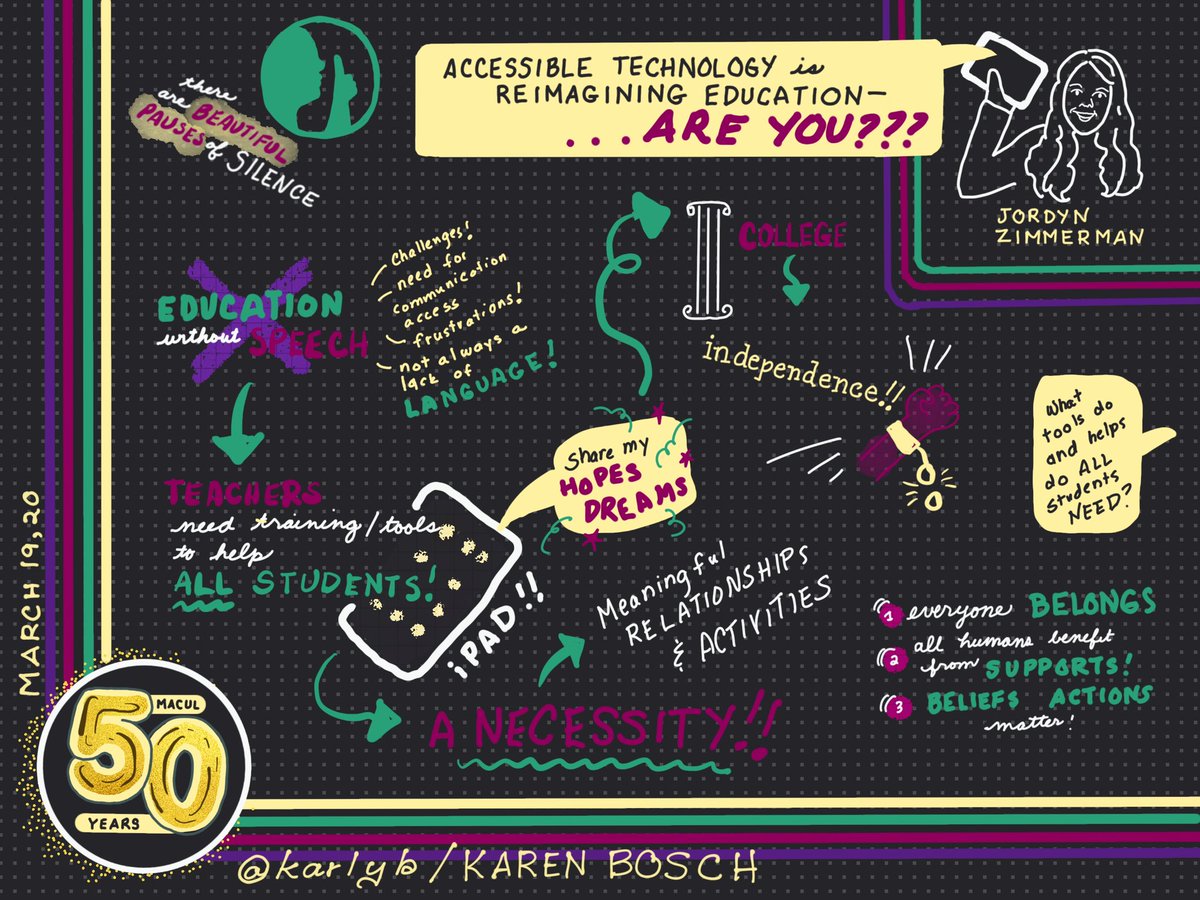 there
are BEAUTIFUL
PAUSES of SILENCE
ACCESSIBLE TECHNOLOGY is
REIMAGINING EDUCATION—
...ARE YOU???
JORDYN
ZIMMERMAN
EDUCATION
without SPEECH
Challenges!
need for
communication
access
frustrations!
not always a
lack of
LANGUAGE!
COLLEGE
independence!!
TEACHERS
need training/tools
to help
ALL STUDENTS!
Share my
HOPES
DREAMS
iPAD!!
A NECESSITY!!
Meaningful
RELATIONSHIPS
& ACTIVITIES
What
tools do
and helps
do ALL
students
NEED?
1 everyone BELONGS
2 all humans benefit
from SUPPORTS!
3 BELIEFS ACTIONS
matter!
MARCH 19, 20
50
MACUL
YEARS
@karlyb/KAREN BOSCH